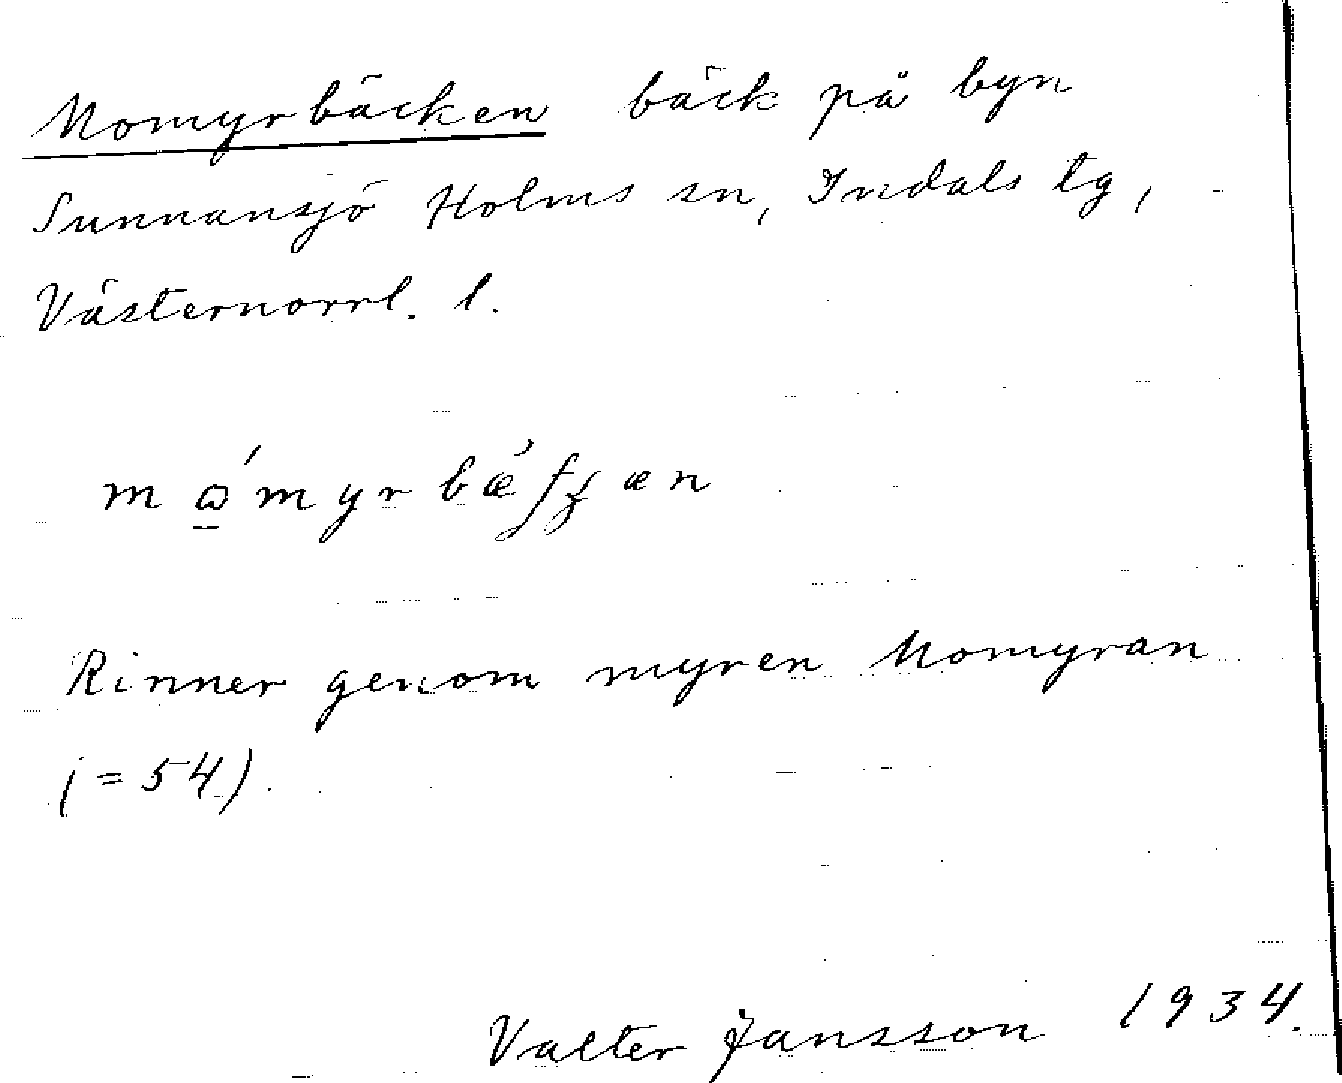 Momyrbäcken bäck på byn
Sunnansjö Holms sn, Indals tg,
Västernorrl. l.
Rinner genom myren Momyran
(= 54).
Valter Jansson 1934.